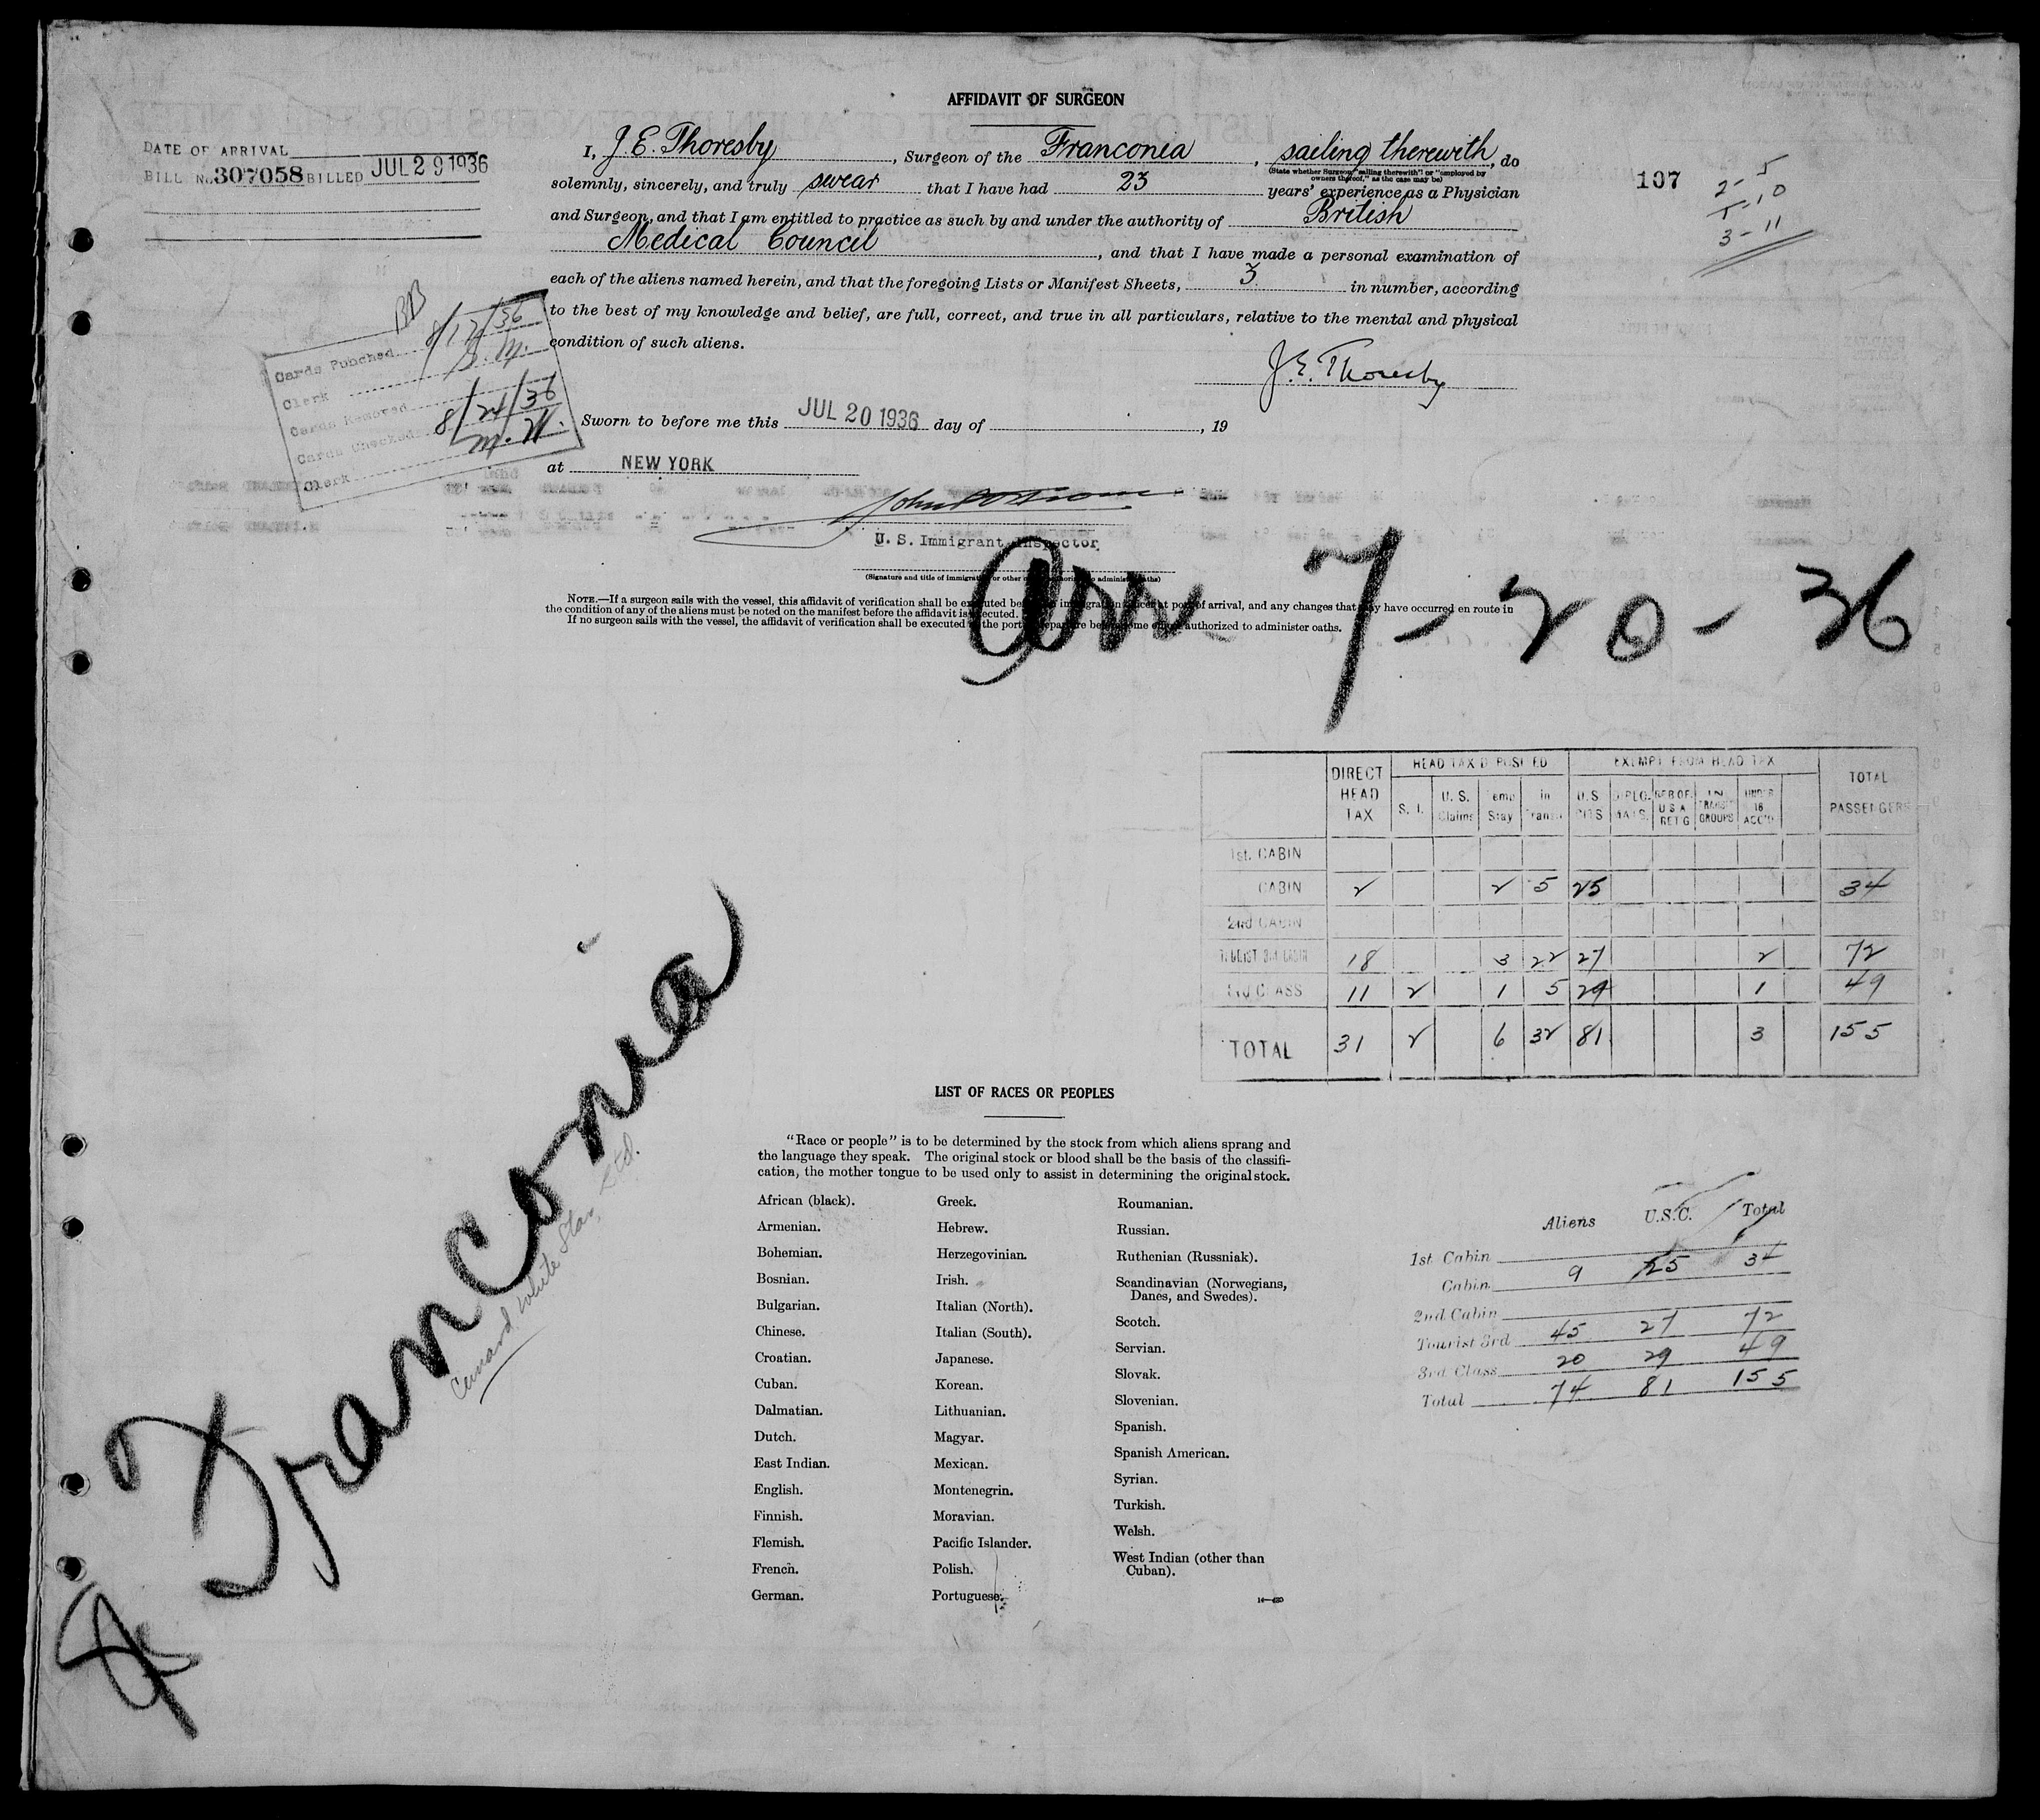 AFFIDAVIT OF SURGEON
DATE OF ARRIVAL
BILL No. 307058 BILLED JUL 29 1936
I, J. E. Thoresby, Surgeon of the Franconia, sailing therewith, do
(State whether Surgeon "sailing therewith" or "employed by
owners thereof," as the case may be)
solemnly, sincerely, and truly swear that I have had 23 years' experience as a Physician
and Surgeon, and that I am entitled to practice as such by and under the authority of British
Medical Council, and that I have made a personal examination of
each of the aliens named herein, and that the foregoing Lists or Manifest Sheets, 3 in number, according
to the best of my knowledge and belief, are full, correct, and true in all particulars, relative to the mental and physical
condition of such aliens.
J. E. Thoresby
107
2-5
1-10
3-11
Cards Punched 8/12/36
Clerk S. M.
Cards Removed
Cards Checked 8/24/36
Clerk
Sworn to before me this JUL 20 1936 day of , 19
at NEW YORK
U. S. Immigrant Inspector
(Signature and title of immigration or other officer authorized to administer oaths)
NOTE.—If a surgeon sails with the vessel, this affidavit of verification shall be executed before an immigration officer at port of arrival, and any changes that may have occurred en route in
the condition of any of the aliens must be noted on the manifest before the affidavit is executed.
If no surgeon sails with the vessel, the affidavit of verification shall be executed at the port of departure before some officer authorized to administer oaths.
Arr 7-20-36
DIRECT HEAD TAX
HEAD TAX DEPOSITED
EXEMPT FROM HEAD TAX
TOTAL PASSENGERS
S. I. U. S. Claims Temp Stay in Transit U.S. CITS DIPLO-MATS. GEB OF. U S A RET'G IN TRANSIT GROUPS UNDER 16 ACC'D
1st. CABIN
CABIN 2 2 5 25 34
2nd CABIN
TOURIST 3rd CABIN 18 3 22 27 2 72
3rd CLASS 11 2 1 5 29 1 49
TOTAL 31 2 6 32 81 3 155
Franconia
Cunard White Star, Ltd.
LIST OF RACES OR PEOPLES
"Race or people" is to be determined by the stock from which aliens sprang and
the language they speak. The original stock or blood shall be the basis of the classifi-
cation, the mother tongue to be used only to assist in determining the original stock.
African (black).
Armenian.
Bohemian.
Bosnian.
Bulgarian.
Chinese.
Croatian.
Cuban.
Dalmatian.
Dutch.
East Indian.
English.
Finnish.
Flemish.
French.
German.
Greek.
Hebrew.
Herzegovinian.
Irish.
Italian (North).
Italian (South).
Japanese.
Korean.
Lithuanian.
Magyar.
Mexican.
Montenegrin.
Moravian.
Pacific Islander.
Polish.
Portuguese.
Roumanian.
Russian.
Ruthenian (Russniak).
Scandinavian (Norwegians,
Danes, and Swedes).
Scotch.
Servian.
Slovak.
Slovenian.
Spanish.
Spanish American.
Syrian.
Turkish.
Welsh.
West Indian (other than
Cuban).
Aliens U.S.C. Total
1st Cabin
Cabin 9 25 34
2nd Cabin
Tourist 3rd 45 27 72
3rd Class 20 29 49
Total 74 81 155